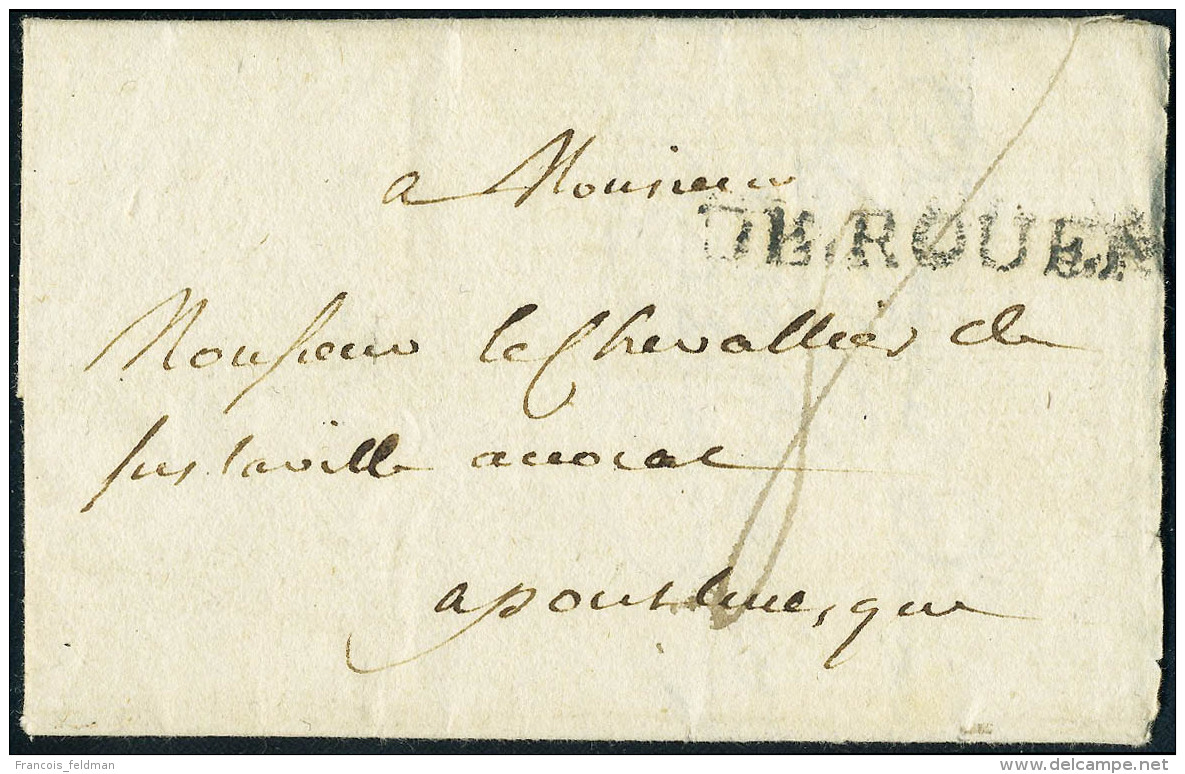 a Monsieur
DE ROUEN
Monsieur le Chevallier de
justaville avocat
a pontleuesque
Francois_feldman
www.delcampe.net